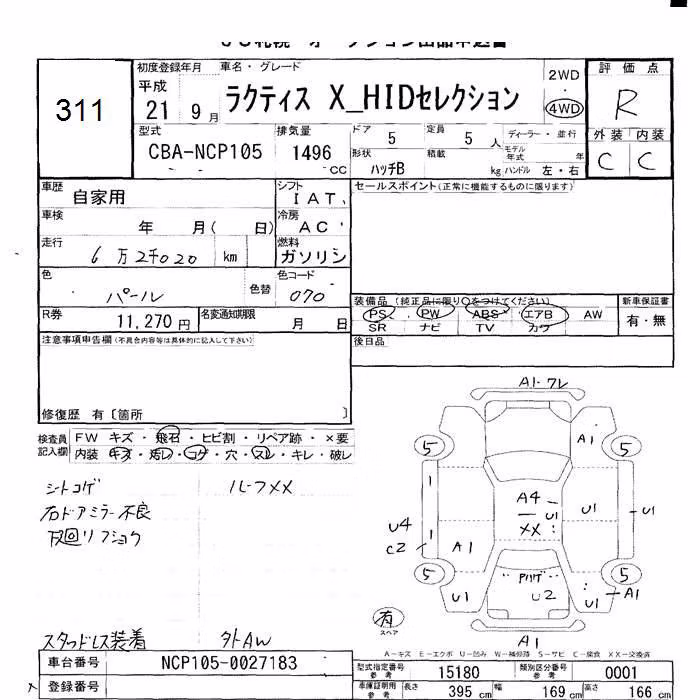 JU札幌 オークション出品申込書
311
初度登録年月 車名・グレード
平成
21 9月 ラクティス X_HIDセレクション
2WD
4WD
評価点
R
外装 内装
C C
型式 排気量 ドア 定員 ディーラー・並行
CBA-NCP105 1496 CC 5 5 人 モデル年式 年
形状 積載
ハッチB kg ハンドル 左・右
車歴 自家用
シフト IAT
車検 年 月( 日)
冷房 AC
走行 6万2千020 km
燃料 ガソリン
色 パール 色替
色コード 070
R券 11,270円
名変通知期限 月 日
セールスポイント(正常に機能するものに限ります)
装備品(純正品に限り○をつけてください) 新車保証書
PS PW ABS エアB AW 有・無
SR ナビ TV カワ
後日品
注意事項申告欄(不具合内容等は具体的に記入して下さい)
修復歴 有〔箇所 〕
検査員記入欄
FW キズ・飛石・ヒビ割・リペア跡・×要
内装 キズ・汚レ・コゲ・穴・スレ・キレ・破レ
シートコゲ ルーフXX
右ドアミラー不良
下廻リフショク
スタッドレス装着 外AW
A1・ワレ
A1
5 5
1
A4 U1 U1 U1
XX
U4 1
C2 A1
5 5
U1 U2 U1 A1
有
スペア
A1
A-キズ E-エクボ U-凹み W-補修跡 S-サビ C-腐食 XX-交換済
車台番号 NCP105-0027183
登録番号
型式指定番号 参考 15180 類別区分番号 参考 0001
車庫証明用 参考 長さ 395 cm 幅 169 cm 高さ 166 cm